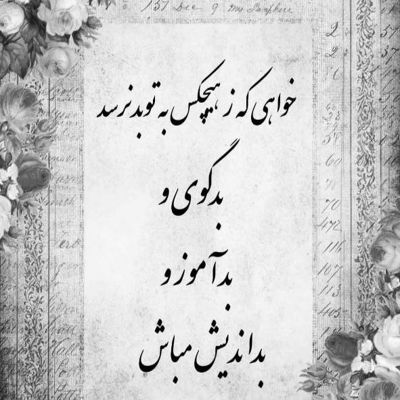 151 Dec 9
خواهی که ز هیچکس به تو بد نرسد
بدگوی و
بدآموز و
بداندیش مباش